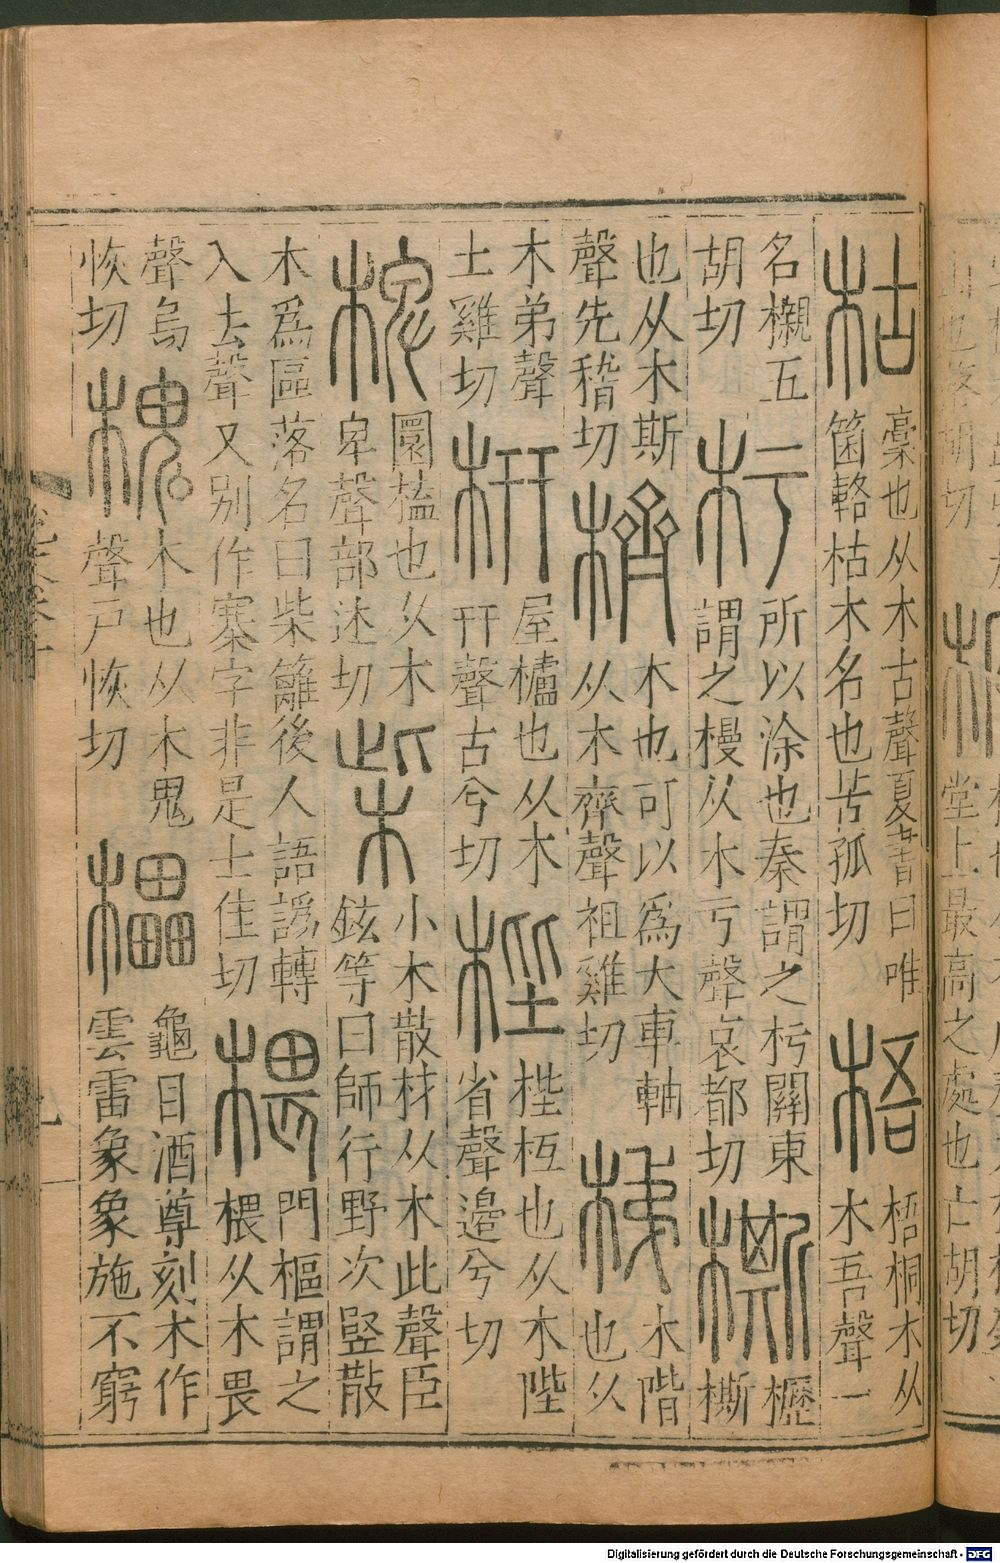 堂上最高之處也亡胡切
枯
槀也从木古聲夏書曰唯
箘輅枯木名也苦孤切
梧
梧桐木从
木吾聲一
名櫬五
胡切
杇
所以涂也秦謂之杇關東
謂之槾从木亏聲哀都切
㯕
櫪
㯕
也从木斯
聲先稽切
櫅
木也可以爲大車軸
从木齊聲祖雞切
梯
木階
也从
木弟聲
土雞切
枅
屋櫨也从木
幵聲古兮切
梐
梐枑也从木陛
省聲邉兮切
椑
圜榼也从木
卑聲部迷切
柴
小木散材从木此聲臣
鉉等曰師行野次竪散
木爲區落名曰柴籬後人語譌轉
入去聲又别作寨字非是士佳切
椳
門樞謂之
椳从木畏
聲烏
恢切
槐
木也从木鬼
聲戶恢切
櫑
龜目酒尊刻木作
雲雷象象施不窮
Digitalisierung gefördert durch die Deutsche Forschungsgemeinschaft - DFG